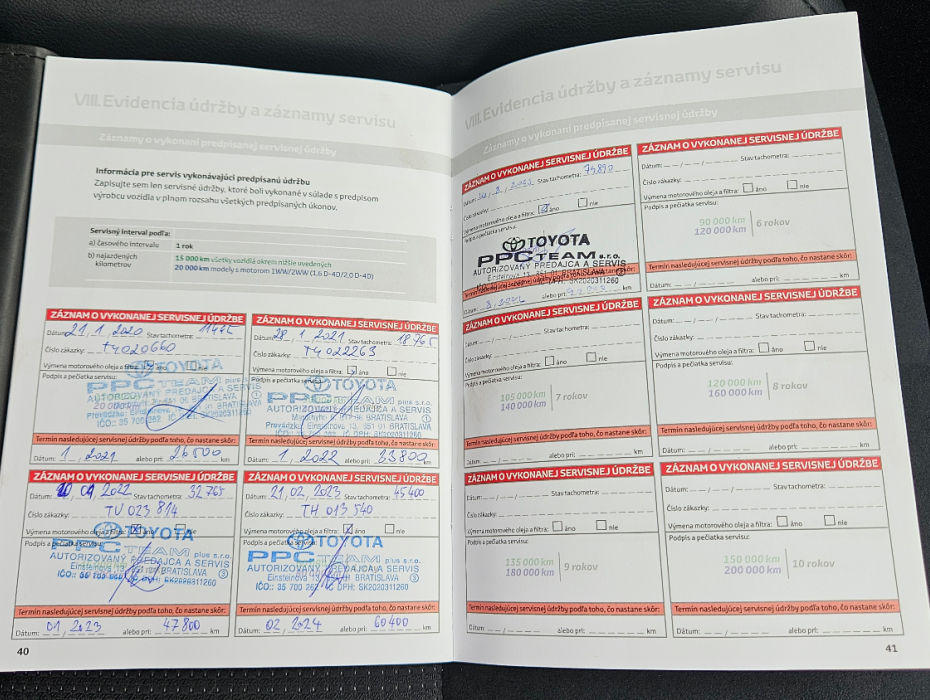 VIII. Evidencia údržby a záznamy servisu
Záznamy o vykonaní predpísanej servisnej údržby
Informácia pre servis vykonávajúci predpísanú údržbu
Zapisujte sem len servisné údržby, ktoré boli vykonané v súlade s predpisom
výrobcu vozidla v plnom rozsahu všetkých predpísaných úkonov.
Servisný interval podľa:
a) časového intervale 1 rok
b) najazdených kilometrov
15 000 km všetky vozidlá okrem nižšie uvedených
20 000 km modely s motorom 1WW/2WW (1,6 D-4D/2,0 D-4D)
ZÁZNAM O VYKONANEJ SERVISNEJ ÚDRŽBE
Dátum: 21. 1. 2020 Stav tachometra:
Číslo zákazky: T4020660
Výmena motorového oleja a filtra:
Podpis a pečiatka servisu:
TOYOTA
PPC TEAM plus s.r.o.
AUTORIZOVANÝ PREDAJCA A SERVIS
Termín nasledujúcej servisnej údržby podľa toho, čo nastane skôr:
Dátum: 1 / 2021 alebo pri: 26500 km
ZÁZNAM O VYKONANEJ SERVISNEJ ÚDRŽBE
Dátum: 28. 1. 2021 Stav tachometra: 18965
Číslo zákazky: T4022263
Výmena motorového oleja a filtra: áno nie
Podpis a pečiatka servisu:
TOYOTA
PPC TEAM plus s.r.o.
AUTORIZOVANÝ PREDAJCA A SERVIS
Termín nasledujúcej servisnej údržby podľa toho, čo nastane skôr:
Dátum: 1 / 2022 alebo pri: 33800 km
ZÁZNAM O VYKONANEJ SERVISNEJ ÚDRŽBE
Dátum: 01, 2022 Stav tachometra: 32765
Číslo zákazky: TU 023 814
Výmena motorového oleja a filtra:
Podpis a pečiatka servisu:
TOYOTA
PPC TEAM plus s.r.o.
AUTORIZOVANÝ PREDAJCA A SERVIS
Einsteinova 13, BRATISLAVA
DPH: SK2020311260 3
Termín nasledujúcej servisnej údržby podľa toho, čo nastane skôr:
Dátum: 01 / 2023 alebo pri: 47800 km
ZÁZNAM O VYKONANEJ SERVISNEJ ÚDRŽBE
Dátum: 21, 02, 2023 Stav tachometra: 45400
Číslo zákazky: TH 013 540
Výmena motorového oleja a filtra: áno nie
Podpis a pečiatka servisu:
TOYOTA
PPC TEAM plus s.r.o.
AUTORIZOVANÝ PREDAJCA A SERVIS
Einsteinova 13, BRATISLAVA
IČO: 35 700 262 IČ DPH: SK2020311260 3
Termín nasledujúcej servisnej údržby podľa toho, čo nastane skôr:
Dátum: 02, 2024 alebo pri: 60400 km
40
VIII. Evidencia údržby a záznamy servisu
Záznamy o vykonaní predpísanej servisnej údržby
ZÁZNAM O VYKONANEJ SERVISNEJ ÚDRŽBE
Dátum: Stav tachometra: 75890
Číslo zákazky:
Výmena motorového oleja a filtra: áno nie
Podpis a pečiatka servisu:
TOYOTA
PPC TEAM s.r.o.
AUTORIZOVANÝ PREDAJCA A SERVIS
Einsteinova 13, 851 01 BRATISLAVA
DPH: SK2020311260
Termín nasledujúcej servisnej údržby podľa toho, čo nastane skôr:
Dátum: alebo pri: km
ZÁZNAM O VYKONANEJ SERVISNEJ ÚDRŽBE
Dátum: Stav tachometra:
Číslo zákazky:
Výmena motorového oleja a filtra: áno nie
Podpis a pečiatka servisu:
90 000 km
120 000 km
6 rokov
Termín nasledujúcej servisnej údržby podľa toho, čo nastane skôr:
Dátum: alebo pri: km
ZÁZNAM O VYKONANEJ SERVISNEJ ÚDRŽBE
Dátum: Stav tachometra:
Číslo zákazky:
Výmena motorového oleja a filtra: áno nie
Podpis a pečiatka servisu:
105 000 km
140 000 km
7 rokov
Termín nasledujúcej servisnej údržby podľa toho, čo nastane skôr:
Dátum: alebo pri: km
ZÁZNAM O VYKONANEJ SERVISNEJ ÚDRŽBE
Dátum: Stav tachometra:
Číslo zákazky:
Výmena motorového oleja a filtra: áno nie
Podpis a pečiatka servisu:
120 000 km
160 000 km
8 rokov
Termín nasledujúcej servisnej údržby podľa toho, čo nastane skôr:
Dátum: alebo pri: km
ZÁZNAM O VYKONANEJ SERVISNEJ ÚDRŽBE
Dátum: Stav tachometra:
Číslo zákazky:
Výmena motorového oleja a filtra: áno nie
Podpis a pečiatka servisu:
135 000 km
180 000 km
9 rokov
Termín nasledujúcej servisnej údržby podľa toho, čo nastane skôr:
Dátum: alebo pri: km
ZÁZNAM O VYKONANEJ SERVISNEJ ÚDRŽBE
Dátum: Stav tachometra:
Číslo zákazky:
Výmena motorového oleja a filtra: áno nie
Podpis a pečiatka servisu:
150 000 km
200 000 km
10 rokov
Termín nasledujúcej servisnej údržby podľa toho, čo nastane skôr:
Dátum: alebo pri: km
41